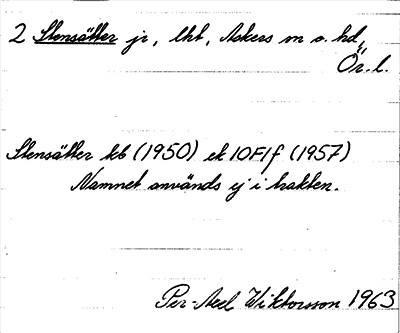 2 Stensätter jr, lht, Ackers sn o. hd,
Ör. l.
Stensätter kb (1950) ek 10F1f (1957)
Namnet används ej i trakten.
Per-Axel Wiktorsson 1963